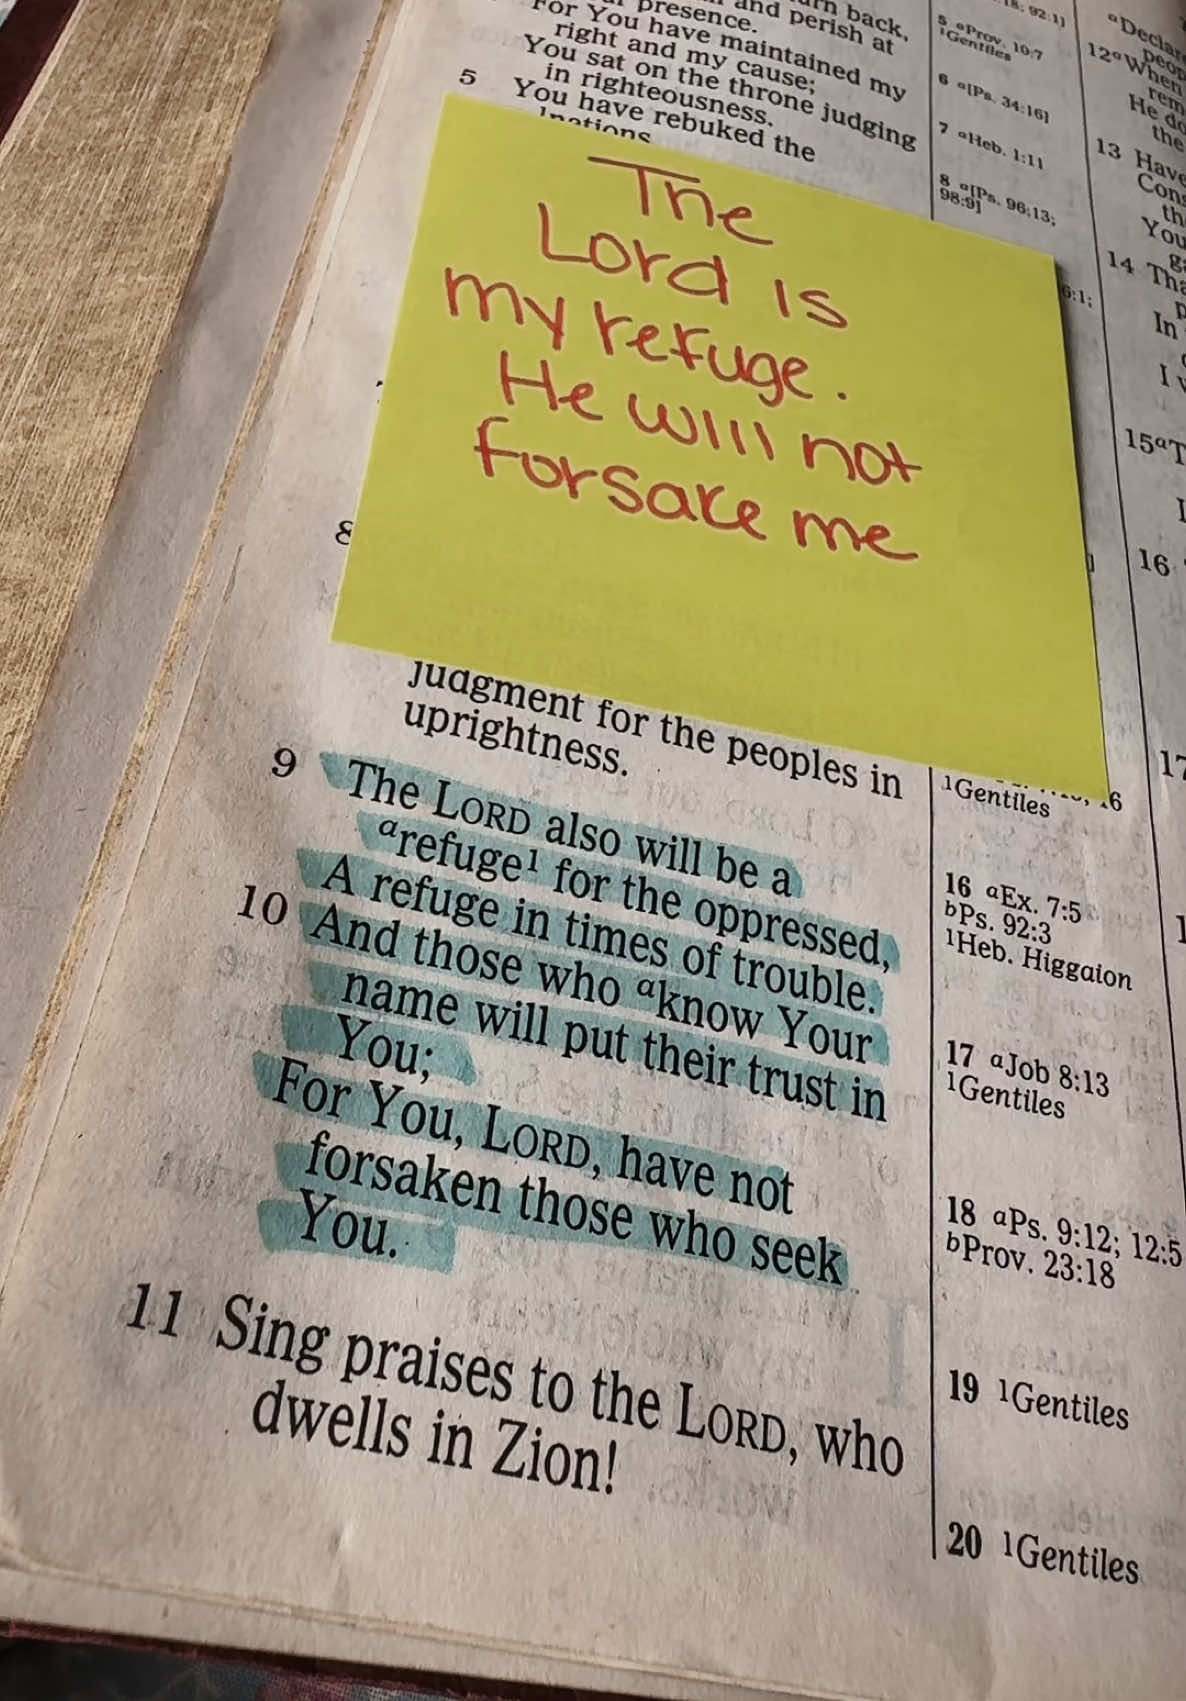 turn back,
and perish at
presence.
For You have maintained my
right and my cause;
You sat on the throne judging
in righteousness.
5 You have rebuked the
¹nations
The
Lord is
my refuge.
He will not
forsake me
8
judgment for the peoples in
uprightness.
9 The LORD also will be a
ᵃrefuge¹ for the oppressed,
A refuge in times of trouble.
10 And those who ᵃknow Your
name will put their trust in
You;
For You, LORD, have not
forsaken those who seek
You.
11 Sing praises to the LORD, who
dwells in Zion!
92:1]
5 ᵃProv. 10:7
¹Gentiles
6 ᵃ[Ps. 34:16]
7 ᵃHeb. 1:11
8 ᵃ[Ps. 96:13;
98:9]
6:1;
¹Gentiles
16 ᵃEx. 7:5
ᵇPs. 92:3
¹Heb. Higgaion
17 ᵃJob 8:13
¹Gentiles
18 ᵃPs. 9:12; 12:5
ᵇProv. 23:18
19 ¹Gentiles
20 ¹Gentiles
12ᵃWhen
He
the
13
You
14
In
I
15ᵃ
16
17